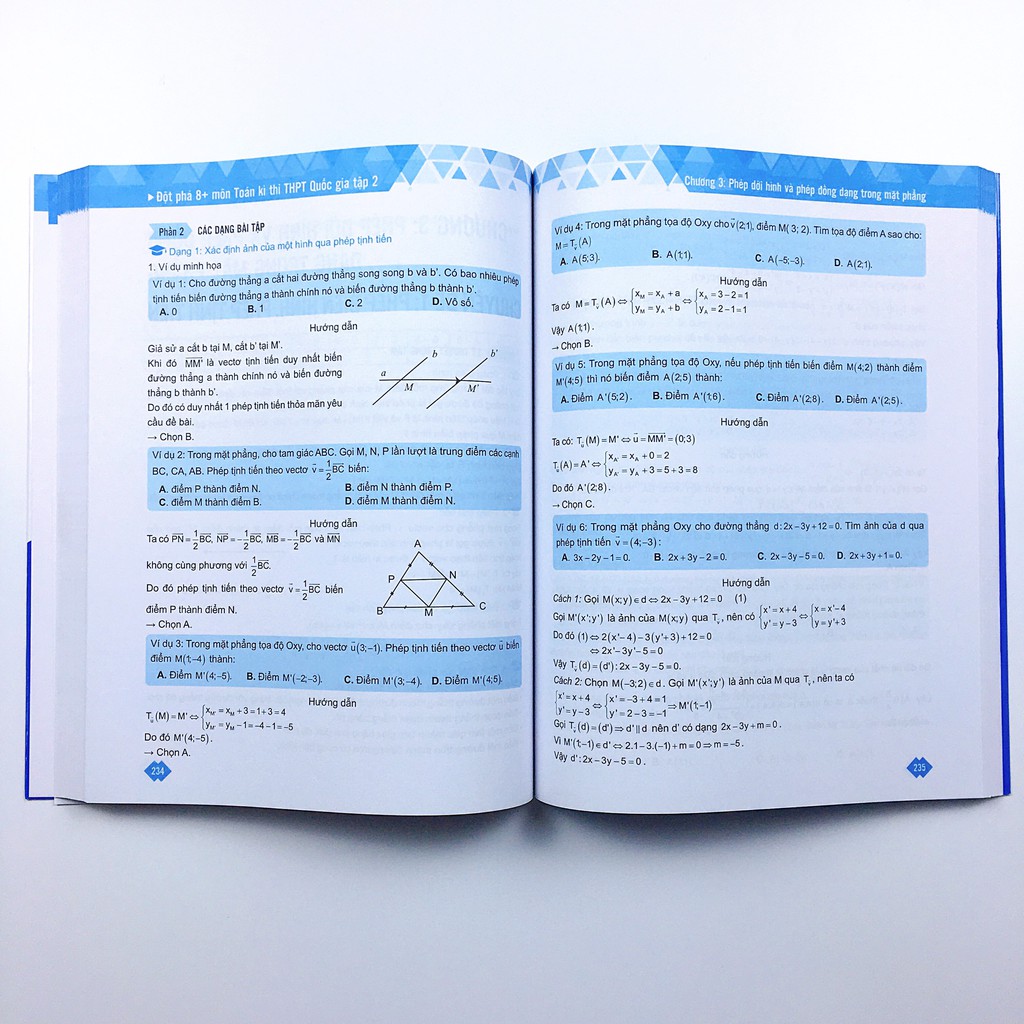 ▸ Đột phá 8+ môn Toán kì thi THPT Quốc gia tập 2
Phần 2 CÁC DẠNG BÀI TẬP
Dạng 1: Xác định ảnh của một hình qua phép tịnh tiến
1. Ví dụ minh họa
Ví dụ 1: Cho đường thẳng a cắt hai đường thẳng song song b và b'. Có bao nhiêu phép
tịnh tiến biến đường thẳng a thành chính nó và biến đường thẳng b thành b'.
A. 0 B. 1 C. 2 D. Vô số.
Hướng dẫn
Giả sử a cắt b tại M, cắt b' tại M'.
Khi đó $\overrightarrow{MM'}$ là vectơ tịnh tiến duy nhất biến
đường thẳng a thành chính nó và biến đường
thẳng b thành b'.
Do đó có duy nhất 1 phép tịnh tiến thỏa mãn yêu
cầu đề bài.
→ Chọn B.
a b b'
M M'
Ví dụ 2: Trong mặt phẳng, cho tam giác ABC. Gọi M, N, P lần lượt là trung điểm các cạnh
BC, CA, AB. Phép tịnh tiến theo vectơ $\vec{v}=\frac{1}{2}\overrightarrow{BC}$ biến:
A. điểm P thành điểm N. B. điểm N thành điểm P.
C. điểm M thành điểm B. D. điểm M thành điểm N.
Hướng dẫn
Ta có $\overrightarrow{PN}=\frac{1}{2}\overrightarrow{BC}$, $\overrightarrow{NP}=-\frac{1}{2}\overrightarrow{BC}$, $\overrightarrow{MB}=-\frac{1}{2}\overrightarrow{BC}$ và $\overrightarrow{MN}$
không cùng phương với $\frac{1}{2}\overrightarrow{BC}$.
Do đó phép tịnh tiến theo vectơ $\vec{v}=\frac{1}{2}\overrightarrow{BC}$ biến
điểm P thành điểm N.
→ Chọn A.
A
P N
B M C
Ví dụ 3: Trong mặt phẳng tọa độ Oxy, cho vectơ $\vec{u}(3;-1)$. Phép tịnh tiến theo vectơ $\vec{u}$ biến
điểm M(1;−4) thành:
A. Điểm M'(4;−5). B. Điểm M'(−2;−3). C. Điểm M'(3;−4). D. Điểm M'(4;5).
Hướng dẫn
$T_{\vec{u}}(M)=M' \Leftrightarrow \begin{cases} x_{M'}=x_M+3=1+3=4 \\ y_{M'}=y_M-1=-4-1=-5 \end{cases}$
Do đó M'(4;−5).
→ Chọn A.
234
Chương 3: Phép dời hình và phép đồng dạng trong mặt phẳng
Ví dụ 4: Trong mặt phẳng tọa độ Oxy cho $\vec{v}(2;1)$, điểm M( 3; 2). Tìm tọa độ điểm A sao cho:
$M=T_{\vec{v}}(A)$
A. A(5;3). B. A(1;1). C. A(−5;−3). D. A(2;1).
Hướng dẫn
Ta có $M=T_{\vec{v}}(A) \Leftrightarrow \begin{cases} x_M=x_A+a \\ y_M=y_A+b \end{cases} \Leftrightarrow \begin{cases} x_A=3-2=1 \\ y_A=2-1=1 \end{cases}$
Vậy A(1;1).
→ Chọn B.
Ví dụ 5: Trong mặt phẳng tọa độ Oxy, nếu phép tịnh tiến biến điểm M(4;2) thành điểm
M'(4;5) thì nó biến điểm A(2;5) thành:
A. Điểm A'(5;2). B. Điểm A'(1;6). C. Điểm A'(2;8). D. Điểm A'(2;5).
Hướng dẫn
Ta có: $T_{\vec{u}}(M)=M' \Leftrightarrow \vec{u}=\overrightarrow{MM'}=(0;3)$
$T_{\vec{u}}(A)=A' \Leftrightarrow \begin{cases} x_{A'}=x_A+0=2 \\ y_{A'}=y_A+3=5+3=8 \end{cases}$
Do đó A'(2;8).
→ Chọn C.
Ví dụ 6: Trong mặt phẳng Oxy cho đường thẳng d:2x−3y+12=0. Tìm ảnh của d qua
phép tịnh tiến $\vec{v}=(4;-3)$:
A. 3x−2y−1=0. B. 2x+3y−2=0. C. 2x−3y−5=0. D. 2x+3y+1=0.
Hướng dẫn
Cách 1: Gọi M(x;y)∈d⇔2x−3y+12=0 (1)
Gọi M'(x';y') là ảnh của M(x;y) qua $T_{\vec{v}}$, nên có $\begin{cases} x'=x+4 \\ y'=y-3 \end{cases} \Leftrightarrow \begin{cases} x=x'-4 \\ y=y'+3 \end{cases}$
Do đó (1)⇔2(x'−4)−3(y'+3)+12=0
⇔2x'−3y'−5=0
Vậy $T_{\vec{v}}(d)=(d')$:2x−3y−5=0.
Cách 2: Chọn M(−3;2)∈d. Gọi M'(x';y') là ảnh của M qua $T_{\vec{v}}$, nên ta có
$\begin{cases} x'=x+4 \\ y'=y-3 \end{cases} \Leftrightarrow \begin{cases} x'=-3+4=1 \\ y'=2-3=-1 \end{cases} \Rightarrow M'(1;-1)$
Gọi $T_{\vec{v}}(d)=(d')$⇒d'∥d nên d' có dạng 2x−3y+m=0.
Vì M'(1;−1)∈d'⇔2.1−3.(−1)+m=0⇒m=−5.
Vậy d':2x−3y−5=0.
235